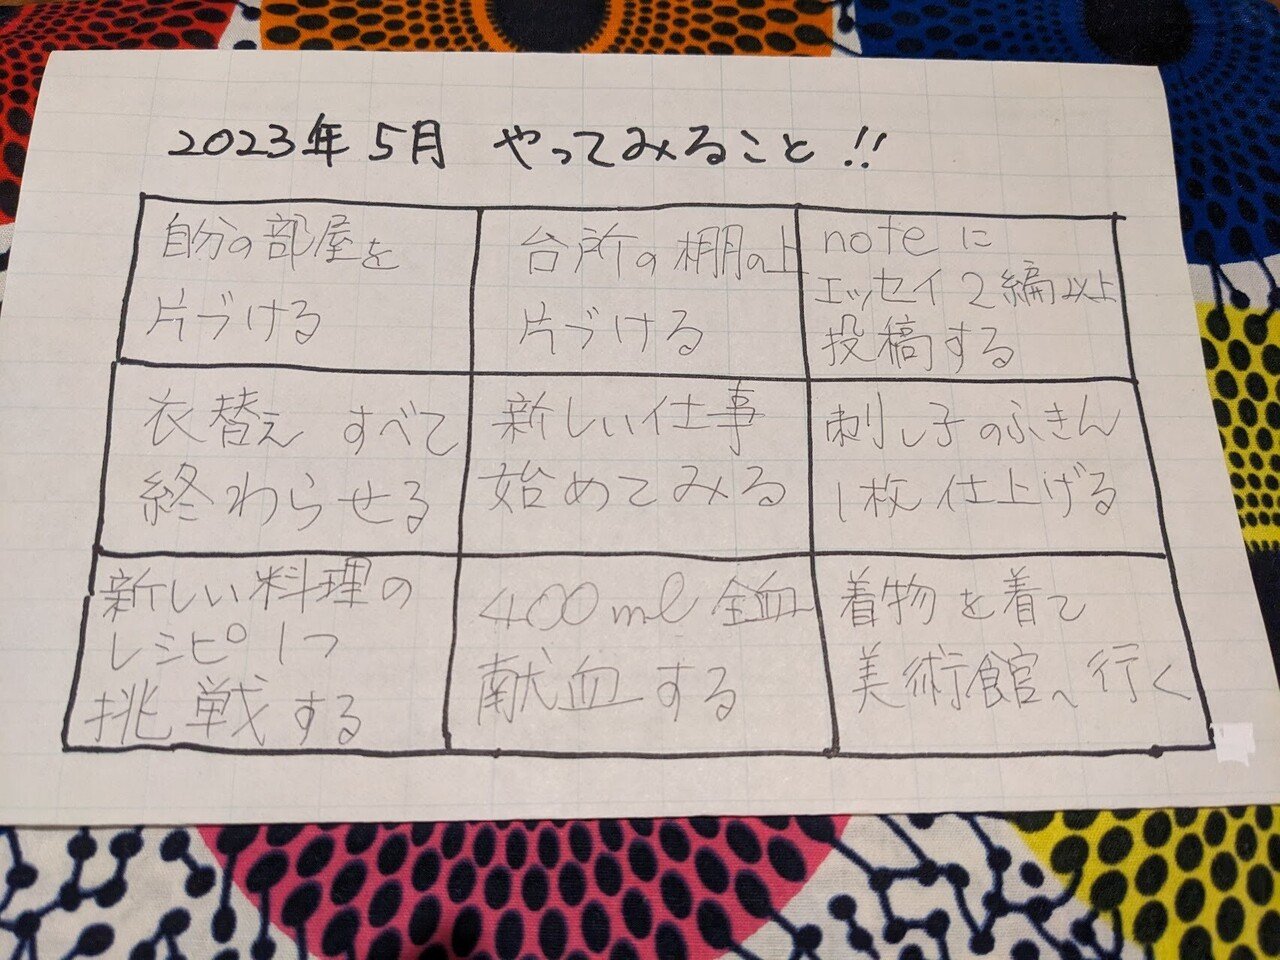 2023年 5月 やってみること!!
自分の部屋を
片づける
台所の棚の上
片づける
noteに
エッセイ2編以上
投稿する
衣替え すべて
終わらせる
新しい仕事
始めてみる
刺し子のふきん
1枚仕上げる
新しい料理の
レシピ1つ
挑戦する
400ml 全血
献血する
着物を着て
美術館へ行く